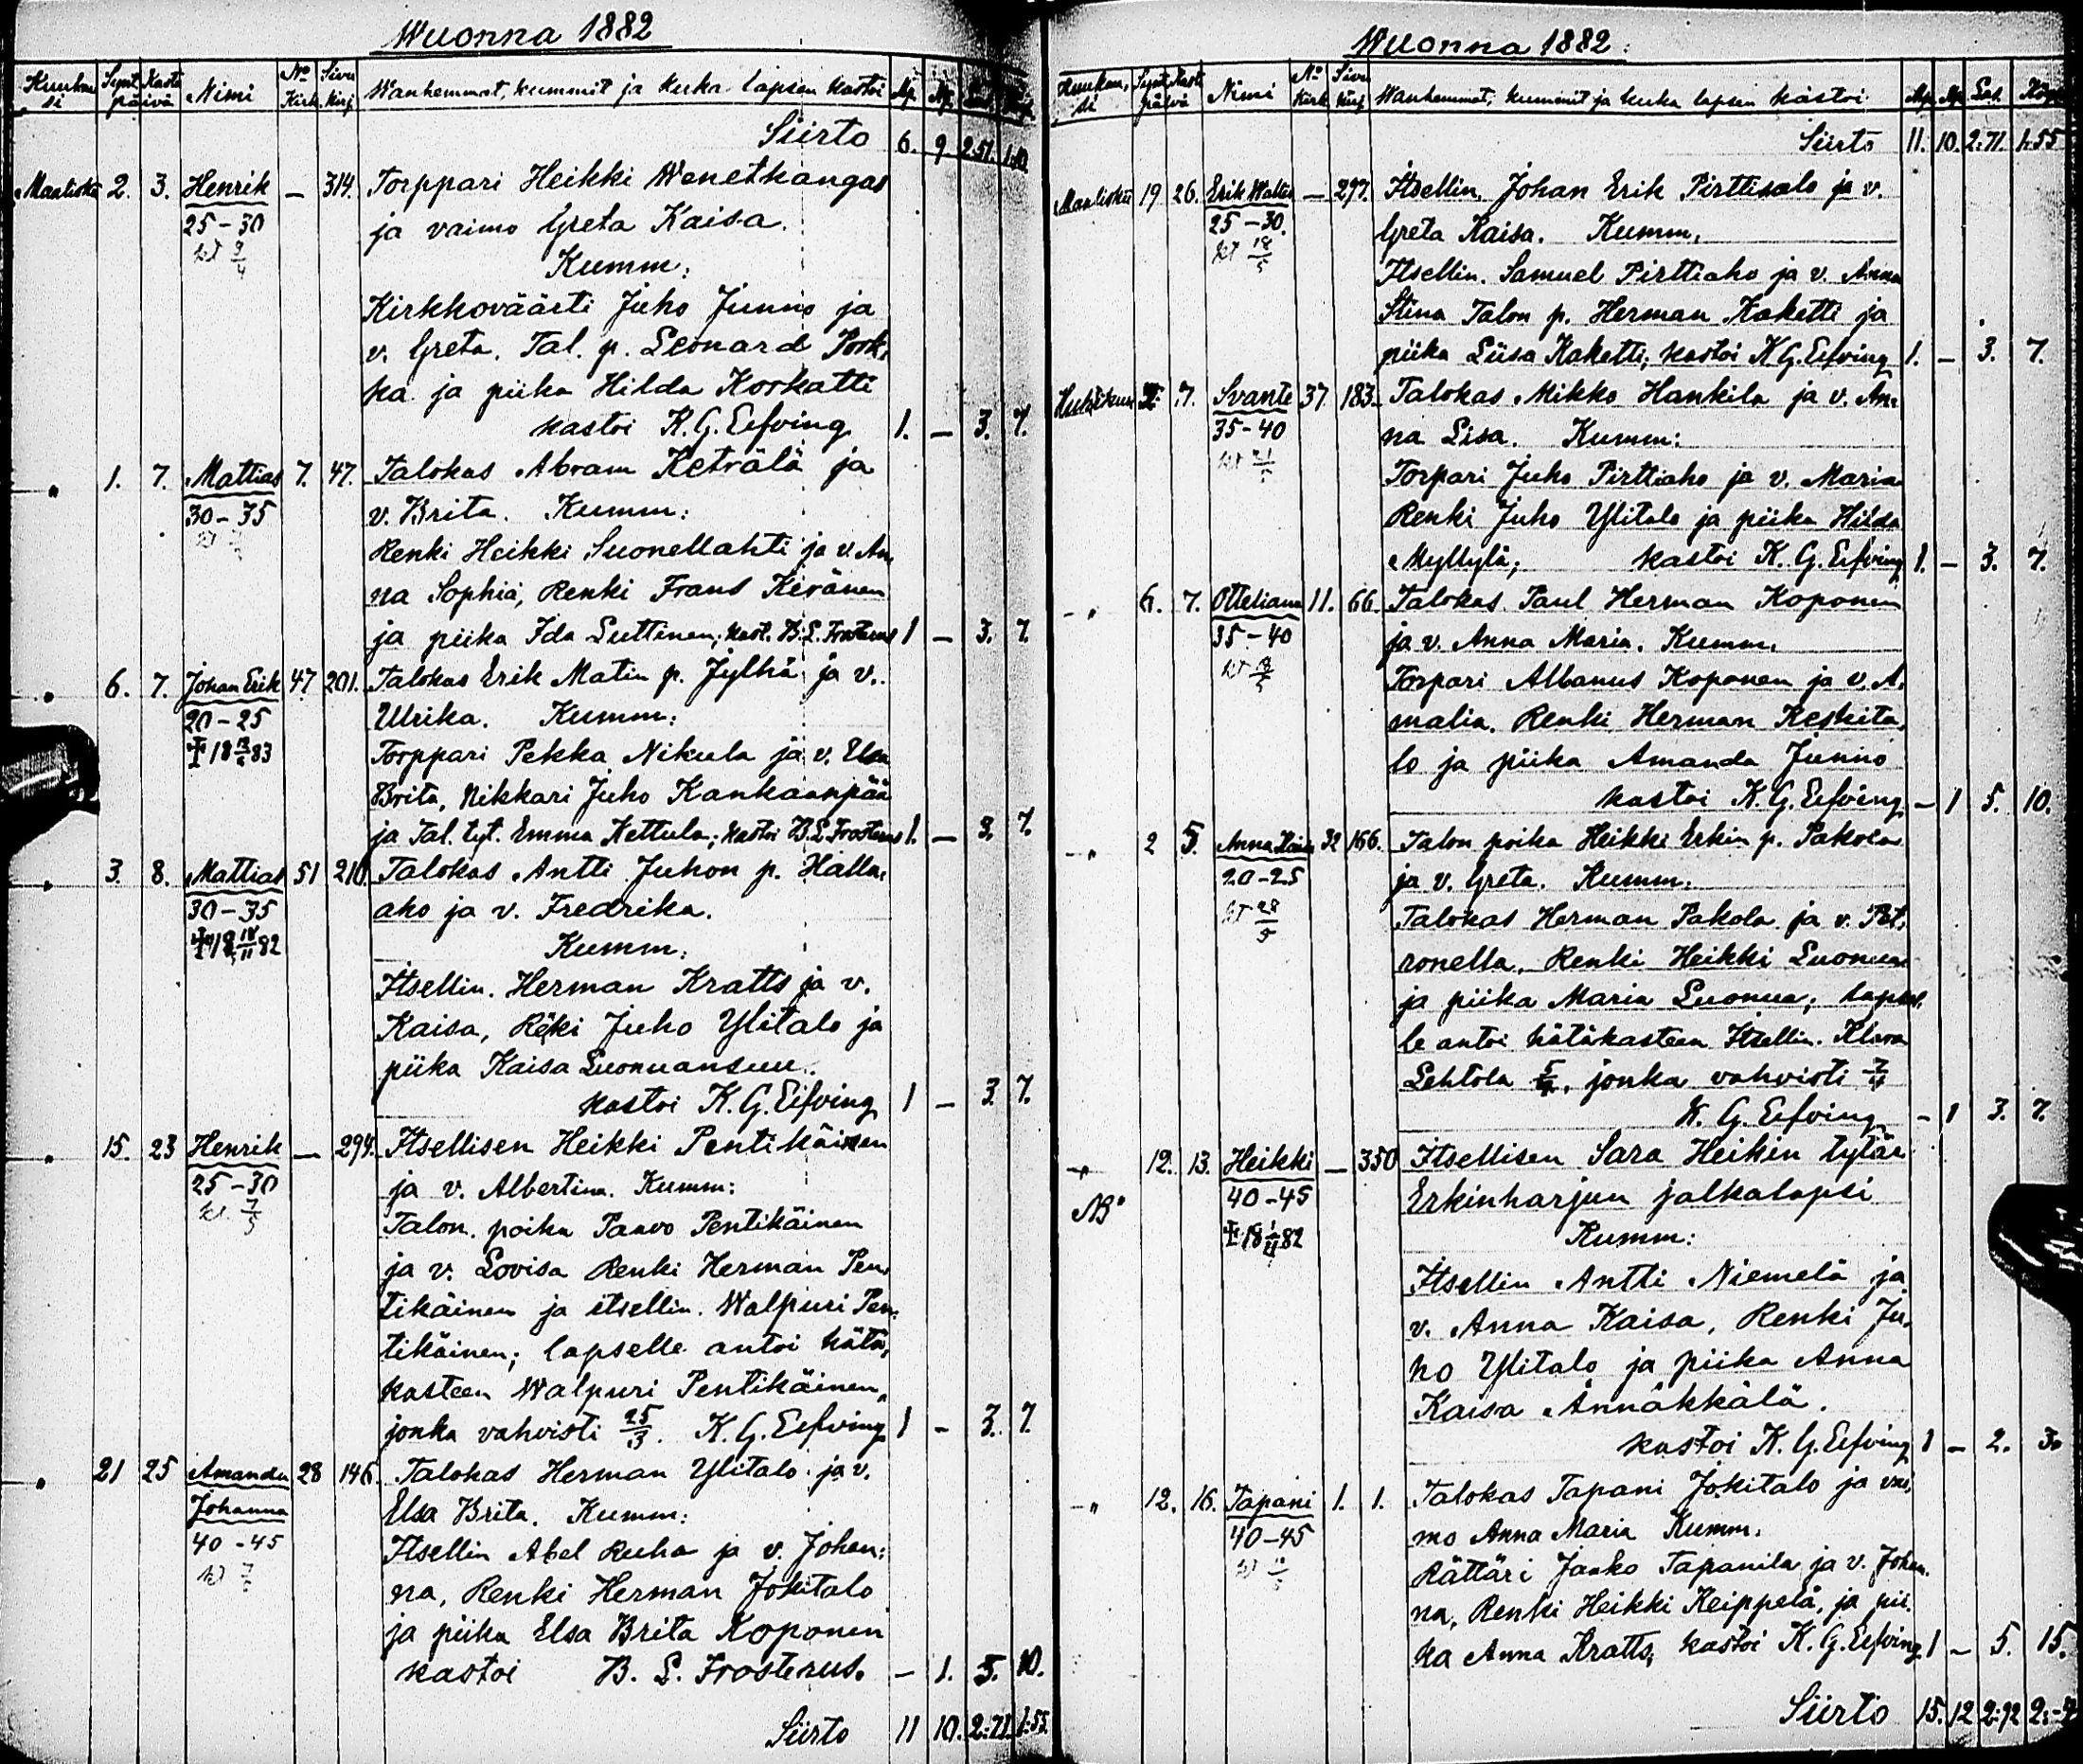 Wuonna 1882
Kuukausi Synt. Kaste päivä Nimi No Kirk. Sivu kirj. Wanhemmat, kummit ja kuka lapsen kastoi Mp. Np.
Siirto 6. 9. 2:51.
Maalisk. 2. 3. Henrik — 314. Torppari Heikki Wenetkangas
25-30 ja vaimo Greta Kaisa.
Kumm:
Kirkkoväärti Juho Junno ja
v. Greta. Tal. p. Leonard Pork,
ka ja piika Hilda Korkatti
kastoi K. G. Eefving. 1. — 3. 7.
" 1. 7. Mattias 7. 47. Talokas Abram Keträlä ja
30-35 v. Brita. Kumm:
Renki Heikki Suonellahti ja v. An,
na Sophia, Renki Frans Keränen
ja piika Ida Luttinen; kast. B. L. Frosterus 1 — 3. 7.
" 6. 7. Johan Erik 47 201. Talokas Erik Matin p. Jylhä ja v.
20-25 Ulrika. Kumm:
Torppari Pekka Nikula ja v. Elsa
Brita, Nikkari Juho Kankaanpää
ja Tal. tyt. Emma Kettula; kastoi B. L. Frosterus 1. — 3. 7.
" 3. 8. Mattias 51 210. Talokas Antti Juhon p. Halla,
30-35 aho ja v. Fredrika.
18 18/11 82 Kumm:
Itsellin. Herman Kratts ja v.
Kaisa, Reki Juho Ylitalo ja
piika Kaisa Luonuansuu.
kastoi K. G. Eefving 1 — 3. 7.
" 15. 23 Henrik — 294. Itsellisen Heikki Pentikäisen
25-30 ja v. Albertina. Kumm:
kt. 7/5 Talon. poika Paavo Pentikäinen
ja v. Lovisa Renki Herman Pen,
tikäinen ja itsellin. Walpuri Pen,
tikäinen; lapselle antoi hätä,
kasteen Walpuri Pentikäinen,
jonka vahvisti 25/3. K. G. Eefving 1 — 3. 7.
" 21 25 Amanda 28 146. Talokas Herman Ylitalo ja v.
Johanna Elsa Brita. Kumm:
40-45 Itsellin Abel Ruha ja v. Johan:
na, Renki Herman Jokitalo
ja piika Elsa Brita Koponen
kastoi B. L. Frosterus. — 1. 5. 10.
Siirto 11 10. 2:71. 1:55.
Wuonna 1882.
Kuukausi Synt. Kaste päivä Nimi No Kirk Sivu kirj Wanhemmat, kummit ja kuka lapsen kastoi Mp. Np.
Siirto 11. 10. 2:71. 1:55
Maalisku 19 26. Erik Walter — 297. Itsellin. Johan Erik Pirttisalo ja v.
25-30. Greta Kaisa. Kumm.
Itsellin. Samuel Pirttiaho ja v. Anna
Stina Talon p. Herman Kaketti ja
piika Liisa Kaketti; kastoi K. G. Eefving 1. — 3. 7.
Huhtikuu 7. Svante 37 183. Talokas Mikko Hankila ja v. An,
35-40 na Lisa. Kumm:
Torpari Juho Pirttiaho ja v. Maria
Renki Juho Ylitalo ja piika Hilda
Myllylä; kastoi K. G. Eefving 1. — 3. 7.
" 6. 7. Otteliana 11. 66. Talokas Paul Herman Koponen
35-40 ja v. Anna Maria. Kumm.
Torpari Albanus Koponen ja v. A,
malia, Renki Herman Keskita,
lo ja piika Amanda Junno
kastoi K. G. Eefving — 1 5. 10.
" 2 5. Anna Kaisa 32 166. Talon poika Heikki Erkin p. Pakola
20-25 ja v. Greta. Kumm.
kt 28/5 Talokas Herman Pakola ja v. Pet,
ronella, Renki Heikki Luonua
ja piika Maria Luonua; lapsel,
le antoi hätäkasteen Itsellin. Klara
Lehtola 5/4, jonka vahvisti 7/4
K. G. Eefving — 1 3. 7.
" 12. 13. Heikki — 350 Itsellisen Sara Heikin tytär
NB 40-45 Erkinharjun jalkalapsi
Kumm:
Itsellin Antti Niemelä ja
v. Anna Kaisa, Renki Ju,
ho Ylitalo ja piika Anna
Kaisa Annäkkälä.
kastoi K. G. Eefving 1 — 2. 3.
" 12. 16. Tapani 1. 1. Talokas Tapani Jokitalo ja vai,
40-45 mo Anna Maria Kumm.
Rättäri Jaako Tapanila ja v. Johan,
na, Renki Heikki Keippelä, ja pii,
ka Anna Kratts; kastoi K. G. Eefving 1 — 5. 15.
Siirto 15. 12 2:92